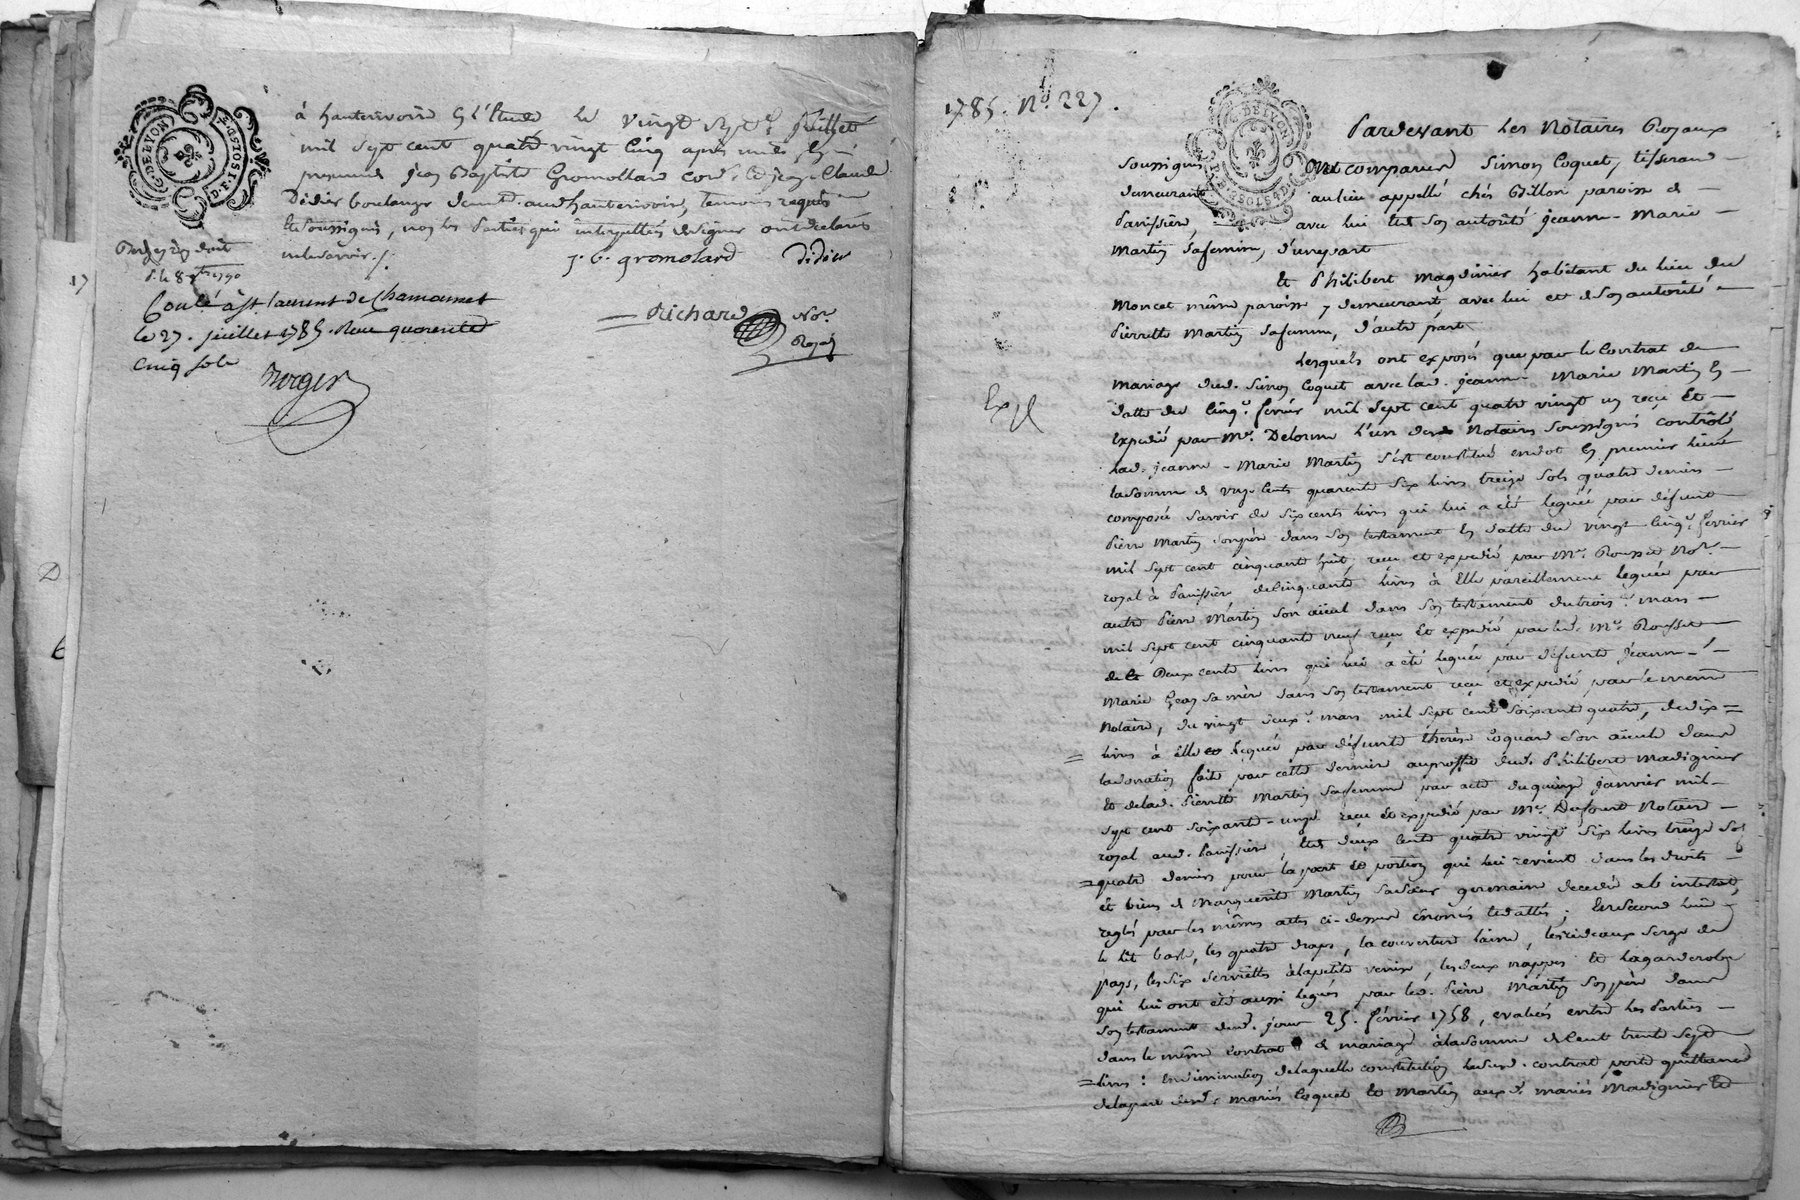 G. DE LYON
P. EG. 5 S. 10 ST.
à hauterivoire En l'Etude le vingt sept.e Juillet
mil sept cent quatre vingt Cinq après midi, En
presence jean Baptiste Gromollard cord. et jean Claude
Didier boulanger demt. aud. hauterivoire, temoins requis
et soussignés, non les Parties qui interpellées de signer ont declarés
ne le savoir ./.
J. B. gromolard Didier
Richard Nore.
Royal
Conlé à St. laurent de Chamousset
le 27. juillet 1785. Reçu quarente
Cinq sols
Berger
1785. No. 227.
G. DE LYON
Pardevant Les Notaires Royaux
soussignés ont comparus Simon Coquet, tisserand
demeurant au lieu appellé chés Billon paroisse de
Panissière, avec lui et de Son autorité jeanne-Marie
Martin sa femme, d'une part
Et Philibert Magdinier habitant du lieu du
Moncet même paroisse, demeurant avec lui et de Son autorité
Pierrette Martin sa femme, d'autre part
Lesquels ont exposés que par le Contrat de
mariage dud. Simon Coquet avec lad. jeanne Marie Martin En
datte du Cinq.e fevrier mil sept cent quatre vingt un reçu Et
Expedié par Me. Delorme l'un des Notaires soussignés contrôlé
lad. jeanne-Marie Martin s'est constitué en dot En premier lieu
la somme de onze Cents quarente Six livres treize Sols quatre deniers
composée savoir de six cents livres qui lui a été leguée par défunt
Pierre Martin son père dans Son testament En datte du vingt Cinq.e fevrier
mil sept cent cinquante huit, reçu et expedié par Me. Rousset Nore.
royal à Panissière de Cinquante livres à Elle pareillement leguée par
autre Pierre Martin Son aïeul dans Son testament du trois.e mars
mil sept cent cinquante neuf reçu Et expedié par led. Me. Rousset
de Deux cents livres qui lui a été leguée par défunte jeanne
Marie Geay sa mère dans Son testament reçu et expedié par le même
Notaire, du vingt deux.e mars mil sept cent soixante quatre, de dix
livres à Elle leguée par défunte therèse Coquard Son aïeule dans
la donation faite par cette dernière au proffit dud. Philibert Madignier
Et de lad. Pierrette Martin sa femme par acte du quinze janvier mil
sept cent soixante-onze reçu Et expedié par Me. Dufour Notaire
royal aud. Panissière, Et de deux Cents quatre vingt Six livres treize Sols
quatre deniers pour la part Et portion qui lui revient dans les droits
et biens de Marguerite Martin sa sœur germaine decedée ab intestat,
reglés par les mêmes actes ci-dessus énoncés et dattés; En second lieu
le lit bas, les quatre draps, la couverture laine, les rideaux serge de
pays, les six serviettes à la petite venise, les deux nappes Et la garderobe
qui lui ont été aussi legués par led. Pierre Martin Son père dans
Son testament dud. jour 25. fevrier 1758, evalués entre les Parties
dans le même contrat de mariage à la somme de Cent trente sept
livres: En diminution de laquelle constitution led. contrat porte quittance
de la part desd. mariés Coquet Et Martin aux d. mariés Madignier Et